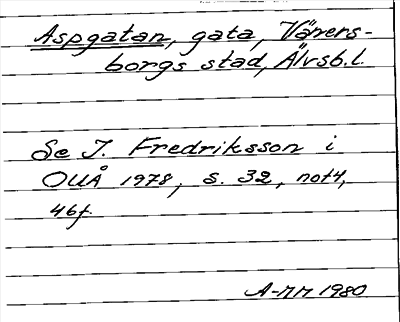 Aspgatan, gata, Väners-
borgs stad, Älvsb.l.
Se I. Fredriksson i
OUÅ 1978, s. 32, not 4,
46f.
A-MM 1980